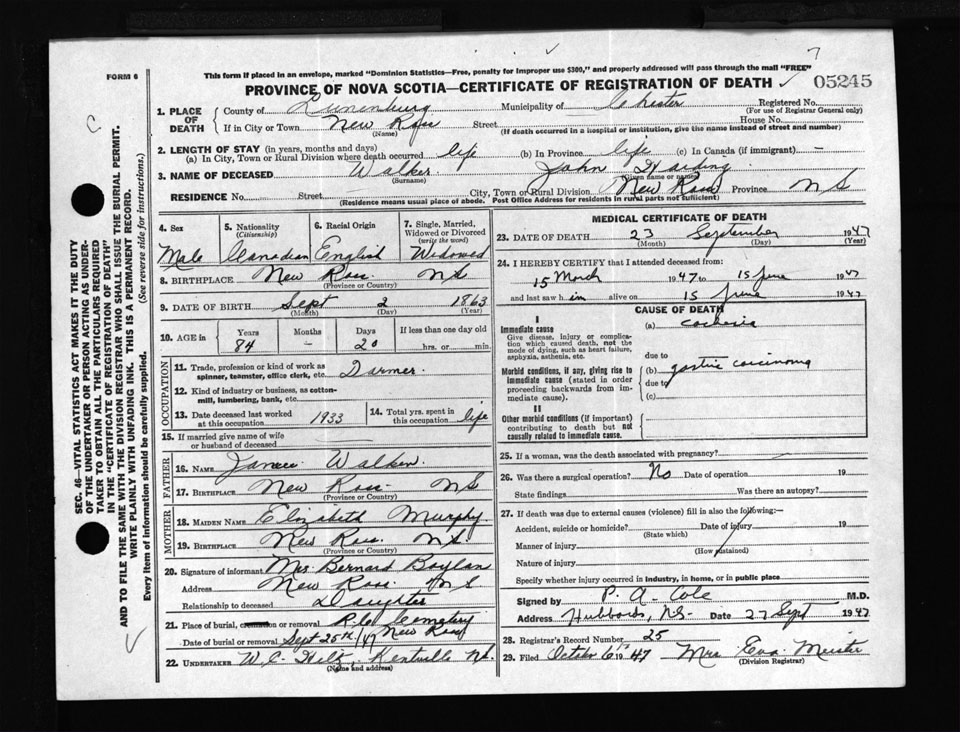 FORM 6
This form if placed in an envelope, marked "Dominion Statistics—Free, penalty for improper use $300," and properly addressed will pass through the mail "FREE"
PROVINCE OF NOVA SCOTIA—CERTIFICATE OF REGISTRATION OF DEATH 05245
1. PLACE OF DEATH
County of Lunenburg Municipality of Chester Registered No.
(For use of Registrar General only)
If in City or Town New Ross Street House No.
(Name) (If death occurred in a hospital or institution, give the name instead of street and number)
2. LENGTH OF STAY (in years, months and days)
(a) In City, Town or Rural Division where death occurred life (b) In Province life (c) In Canada (if immigrant) —
3. NAME OF DECEASED Walker John Harding
(Surname) (Given name or names)
RESIDENCE No. Street City, Town or Rural Division New Ross Province N S
(Residence means usual place of abode. Post Office Address for residents in rural parts not sufficient)
4. Sex Male
5. Nationality (Citizenship) Canadian
6. Racial Origin English
7. Single, Married, Widowed or Divorced (write the word) Widowed
8. BIRTHPLACE New Ross N S
(Province or Country)
9. DATE OF BIRTH Sept 2 1863
(Month) (Day) (Year)
10. AGE in Years 84 Months — Days 20 If less than one day old hrs. or min.
OCCUPATION
11. Trade, profession or kind of work as spinner, teamster, office clerk, etc. Darmer
12. Kind of industry or business, as cotton-mill, lumbering, bank, etc.
13. Date deceased last worked at this occupation 1933
14. Total yrs. spent in this occupation life
15. If married give name of wife or husband of deceased
FATHER
16. NAME James Walker
17. BIRTHPLACE New Ross N S
(Province or Country)
MOTHER
18. MAIDEN NAME Elizabeth Murphy
19. BIRTHPLACE New Ross N S.
(Province or Country)
20. Signature of informant Mrs. Bernard Boylan
Address New Ross N S.
Relationship to deceased Daughter
21. Place of burial, cremation or removal R.C. Cemetery
Date of burial or removal Sept 25th/47 New Ross
22. UNDERTAKER W. C. Hiltz, Kentville N.S.
(Name and address)
MEDICAL CERTIFICATE OF DEATH
23. DATE OF DEATH 23 September 1947
(Month) (Day) (Year)
24. I HEREBY CERTIFY that I attended deceased from:
15 March 1947 to 15 June 1947
and last saw him alive on 15 June 1947
CAUSE OF DEATH
I
Immediate cause
Give disease, injury or complication which caused death, not the mode of dying, such as heart failure, asphyxia, asthenia, etc.
(a) cachexia
due to
Morbid conditions, if any, giving rise to immediate cause (stated in order proceeding backwards from immediate cause).
(b) gastric carcinoma
due to
(c)
II
Other morbid conditions (if important) contributing to death but not causally related to immediate cause.
25. If a woman, was the death associated with pregnancy?
26. Was there a surgical operation? No Date of operation 19
State findings Was there an autopsy?
27. If death was due to external causes (violence) fill in also the following:—
Accident, suicide or homicide? Date of injury 19
(State which)
Manner of injury
(How sustained)
Nature of injury
Specify whether injury occurred in industry, in home, or in public place
Signed by P. A. Cole M.D.
Address Hubbards, N.S. Date 27 Sept 1947
28. Registrar's Record Number 25
29. Filed October 6th 1947 Mrs Eva Meister
(Division Registrar)
SEC. 46—VITAL STATISTICS ACT MAKES IT THE DUTY
OF THE UNDERTAKER OR PERSON ACTING AS UNDER-
TAKER TO OBTAIN ALL THE PARTICULARS REQUIRED
IN THE "CERTIFICATE OF REGISTRATION OF DEATH"
AND TO FILE THE SAME WITH THE DIVISION REGISTRAR WHO SHALL ISSUE THE BURIAL PERMIT.
WRITE PLAINLY WITH UNFADING INK. THIS IS A PERMANENT RECORD.
Every item of information should be carefully supplied. (See reverse side for instructions.)